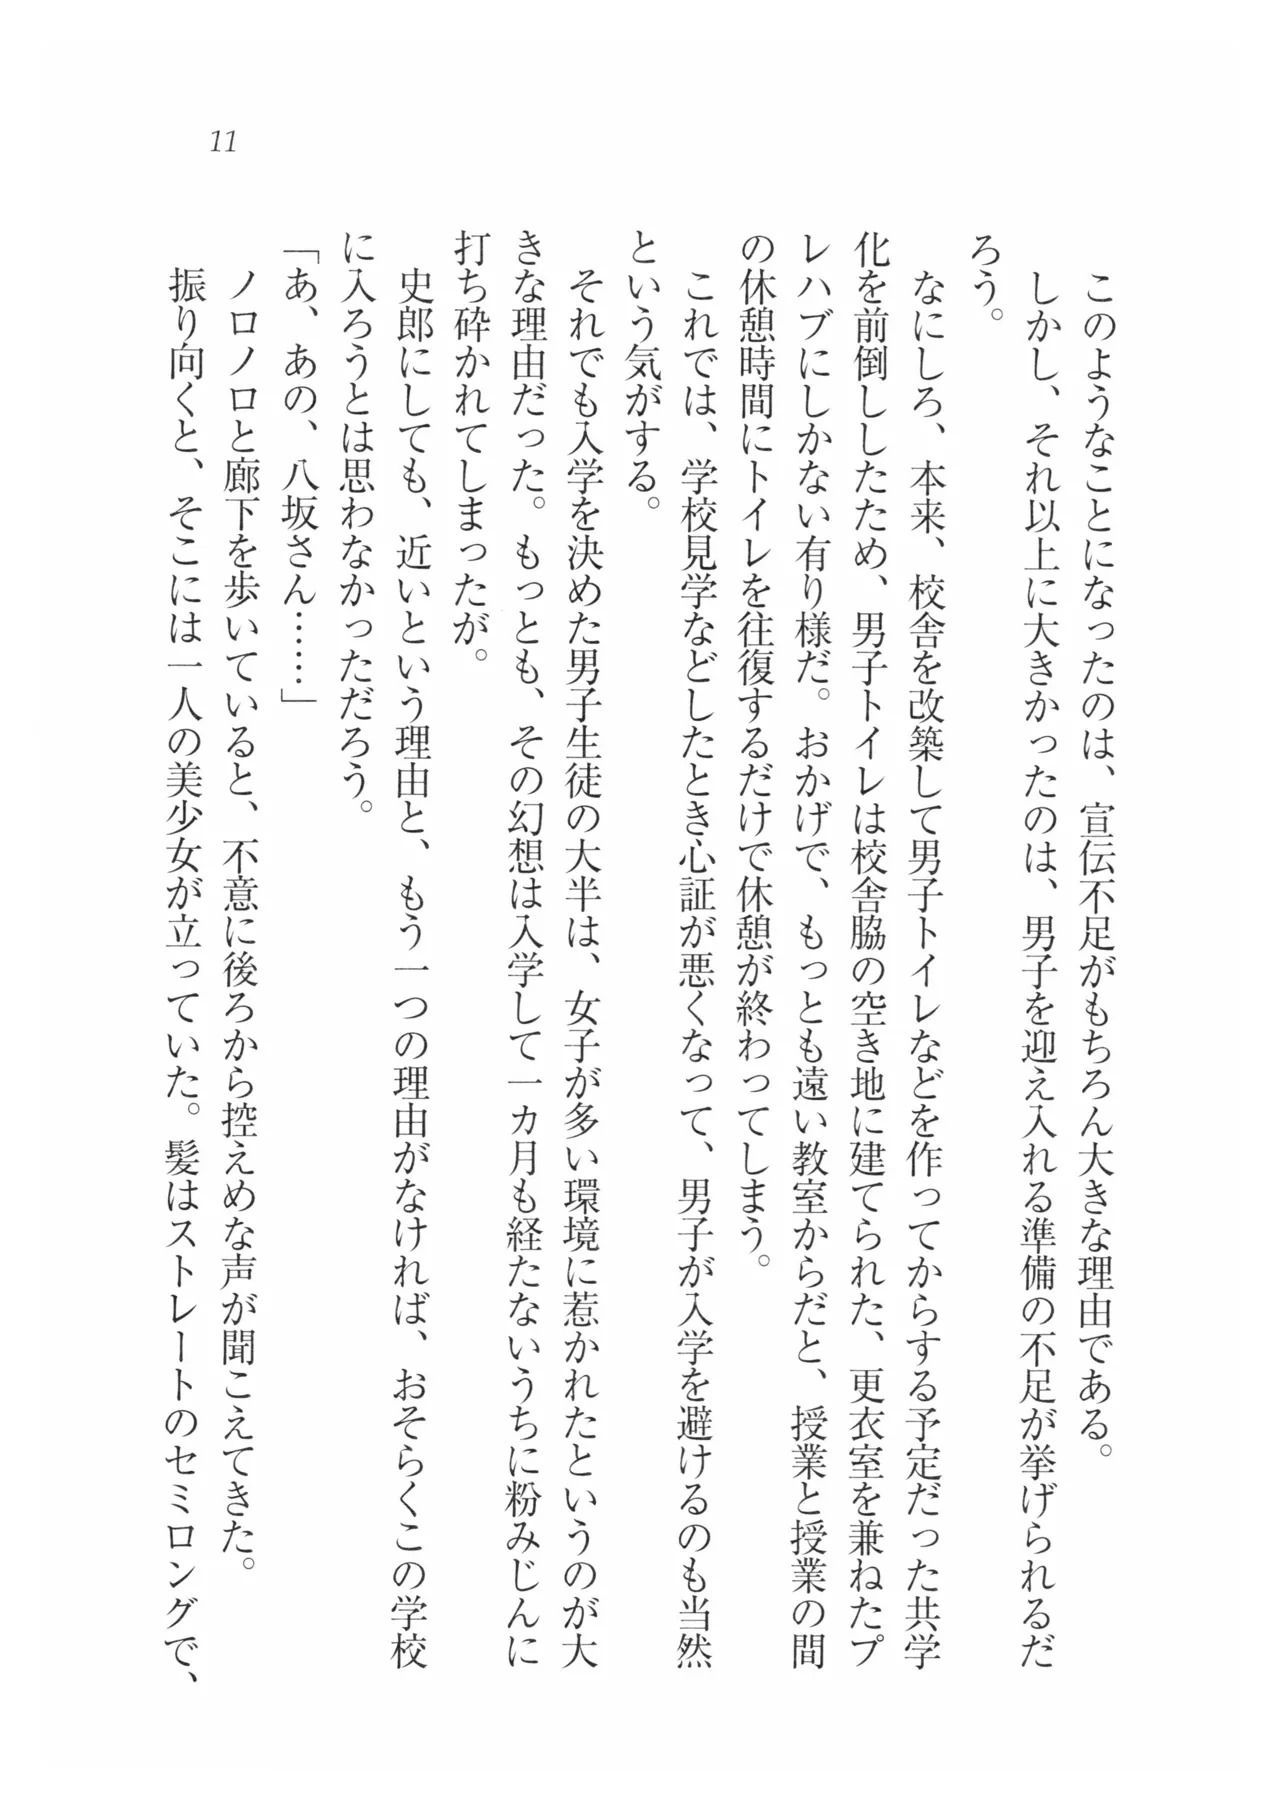 11
このようなことになったのは、宣伝不足がもちろん大きな理由である。
しかし、それ以上に大きかったのは、男子を迎え入れる準備の不足が挙げられるだ
ろう。
なにしろ、本来、校舎を改築して男子トイレなどを作ってからする予定だった共学
化を前倒ししたため、男子トイレは校舎脇の空き地に建てられた、更衣室を兼ねたプ
レハブにしかない有り様だ。おかげで、もっとも遠い教室からだと、授業と授業の間
の休憩時間にトイレを往復するだけで休憩が終わってしまう。
これでは、学校見学などしたとき心証が悪くなって、男子が入学を避けるのも当然
という気がする。
それでも入学を決めた男子生徒の大半は、女子が多い環境に惹かれたというのが大
きな理由だった。もっとも、その幻想は入学して一カ月も経たないうちに粉みじんに
打ち砕かれてしまったが。
史郎にしても、近いという理由と、もう一つの理由がなければ、おそらくこの学校
に入ろうとは思わなかっただろう。
「あ、あの、八坂さん……」
ノロノロと廊下を歩いていると、不意に後ろから控えめな声が聞こえてきた。
振り向くと、そこには一人の美少女が立っていた。髪はストレートのセミロングで、